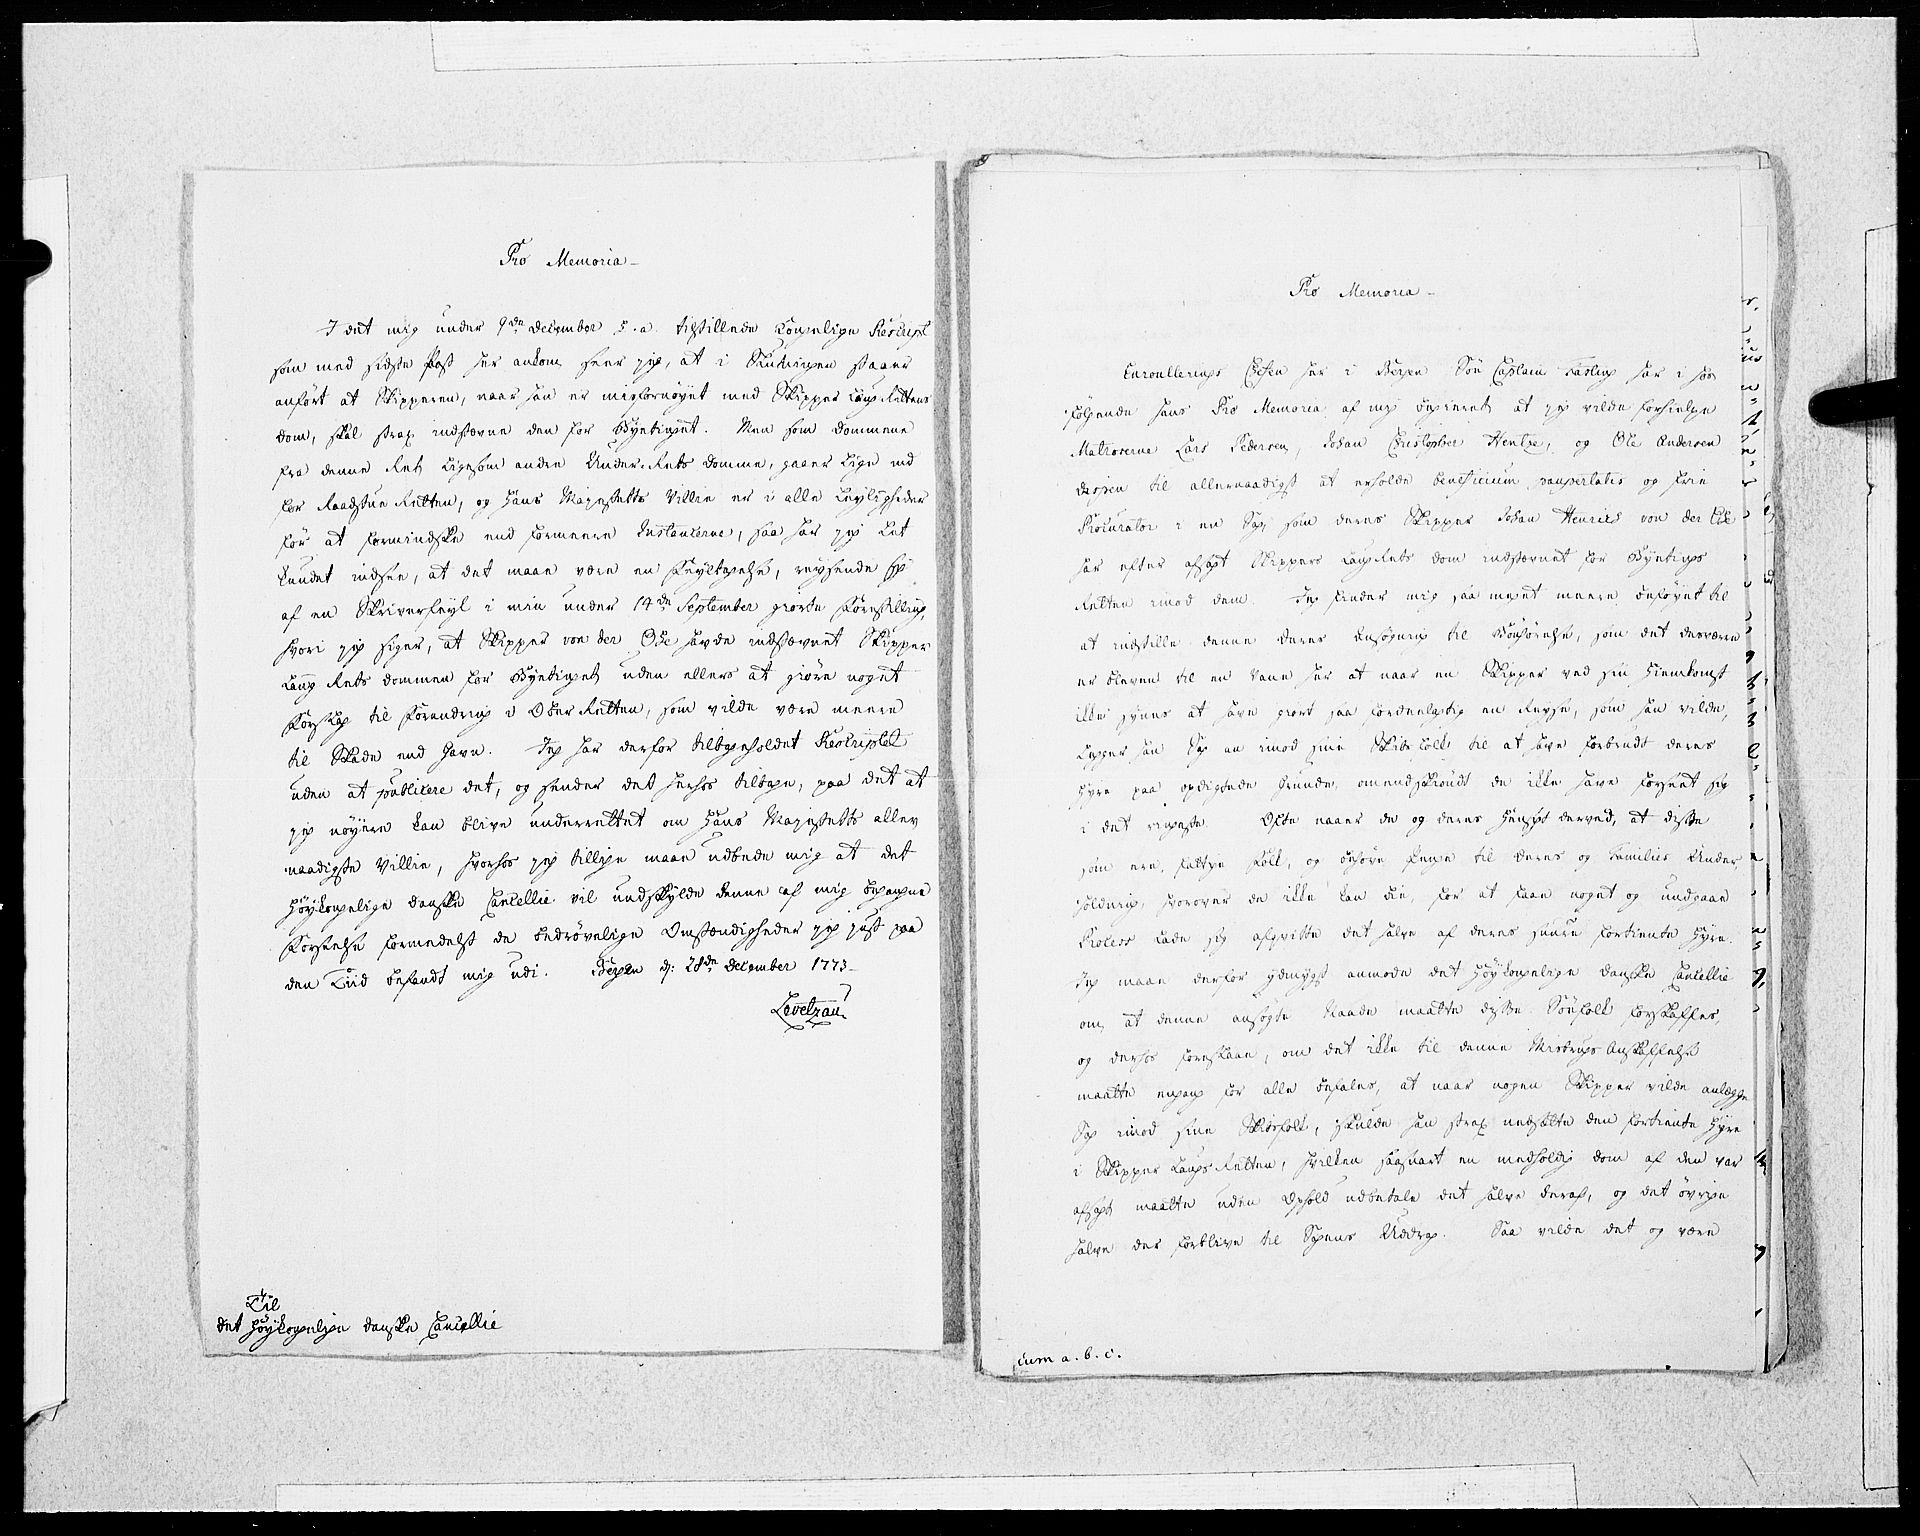 Pro Memoria
I det mig under 9de December h. a. tilstillede Kongelige Rescript
som med sidste Post her ankom seer jeg, at i Slutningen staaer
anført at Skipperen, naar han er misfornøyet med Skipper Laugs Rettens
dom, skal strax indstævne den for Byetinget. Men som dommene
fra denne Ret ligesom andre Under-Rets domme, gaaer lige ind
for Raadstue Retten, og Hans Majestetts Villie er i alle Leyligheder
før at formindske end formeere Instancerne, saa har jeg let
kundet indsee, at det maae være en Feyltagelse, reysende sig
af en Skriverfeyl i min under 14de September giorte Forestilling,
hvori jeg siger, at Skipper von der Ohe havde indstævnet Skipper
Laug Rets dommen for Byetinget uden ellers at giøre noget
Forslag til Forandring i Ober Retten, som vilde være meere
til Skade end Gavn. Jeg har derfor tilbageholdet Rescriptet
uden at publicere det, og sender det herhos tilbage, paa det at
jeg nøyere kan blive underrettet om Hans Majestetts aller
naadigste Villie, hvorhos jeg tillige maae udbede mig at det
Høykongelige danske Cancellie vil undskylde denne af mig begangne
Forseelse formedelst de bedrøvelige Omstændigheder jeg just paa
den Tiid befandt mig udi. Bergen d: 28de December 1773
Levetzau
Til
det Høykongelige danske Cancellie
Pro Memoria
Enroullerings Chefen her i Bergen Søe Capitain Kaalbøg har i hos
følgende hans Pro Memoria af mig begieret at jeg vilde forhielpe
Matroserne Lars Pedersen, Johan Christopher Hentze, og Ole Andersen
til allernaadigst at erholde beneficium paupertatis og frie
Procurator i en Sag, som deres Skipper Johan Henrich von der Ohe
har efter afsagt Skippers Laug Rets dom indstævnet for Byetings
Retten imod dem. Jeg finder mig saa meget meere beføyet til
at indstille denne deres Ansøgning til Bønhørelse, som det desværre
er bleven til en Vane her at naar en Skipper ved sin Hiemkomst
ikke synes at have giort saa fordeelagtig en Reyse, som han vilde,
lægger han Sag an imod sine Skibsfolk til at have forbrudt deres
Hyre paa opdigtede Grunde, omendskiøndt de ikke have forseet sig
i det ringeste. Ofte naaer de og deres Hensigt derved, at disse
som ere fattige folk, og behøve Penge til deres og Families Under
holdning, hvorover de ikke kan bie, for at faae noget og undgaae
Process lade sig afqvitte det halve af deres suure fortiente Hyre.
Jeg maae derfor ydmygst anmode det Høykongelige danske Cancellie
om, at denne ansøgte Naade maatte disse Søefolk forskaffes,
og derhos foreslaae, om det ikke til denne Misbrugs Afskaffelse
maatte engang for alle befales, at naar nogen Skipper vilde anlægge
Sag imod sine Skibsfolk, skulde han strax nedsætte den fortiente Hyre
i Skipper Laugs Retten, hvilken saasnart en medholdig dom af den var
afsagt maatte uden Ophold udbetale det halve deraf, og det øvrige
halve der forblive til Sagens Uddrag. Saa vilde det og være
cum a. b. c.